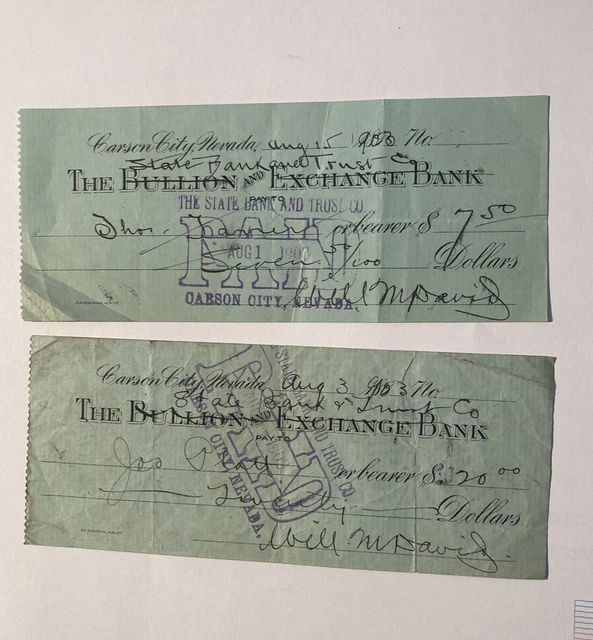 Carson City, Nevada, Aug 15 1903 No.
State Bank and Trust Co
THE BULLION AND EXCHANGE BANK
THE STATE BANK AND TRUST CO
Thos. or bearer $ 7 50
PAID
AUG 1
Seven 50/100 Dollars
CARSON CITY, NEVADA.
Will McDavid
Carson City, Nevada, Aug 3 1903 No.
State Bank & Trust Co
THE BULLION AND EXCHANGE BANK
PAY TO
or bearer $ 20 00
Twenty Dollars
PAID
STATE BANK AND TRUST CO.
CARSON CITY, NEVADA.
Will McDavid